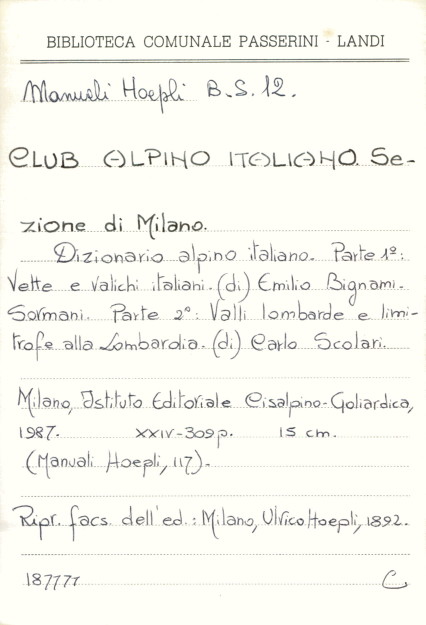 BIBLIOTECA COMUNALE PASSERINI - LANDI
Manuali Hoepli B.S.12.
CLUB ALPINO ITALIANO. Se-
zione di Milano.
Dizionario alpino italiano. Parte 1ª:
Vette e valichi italiani. (di) Emilio Bignami-
Sormani. Parte 2ª: Valli lombarde e limi-
trofe alla Lombardia. (di) Carlo Scolari.
Milano, Istituto Editoriale Cisalpino-Goliardica,
1987. XXIV-309p. 15 cm.
(Manuali Hoepli, 117).
Ripr. facs. dell'ed.: Milano, Ulrico Hoepli, 1892.
C